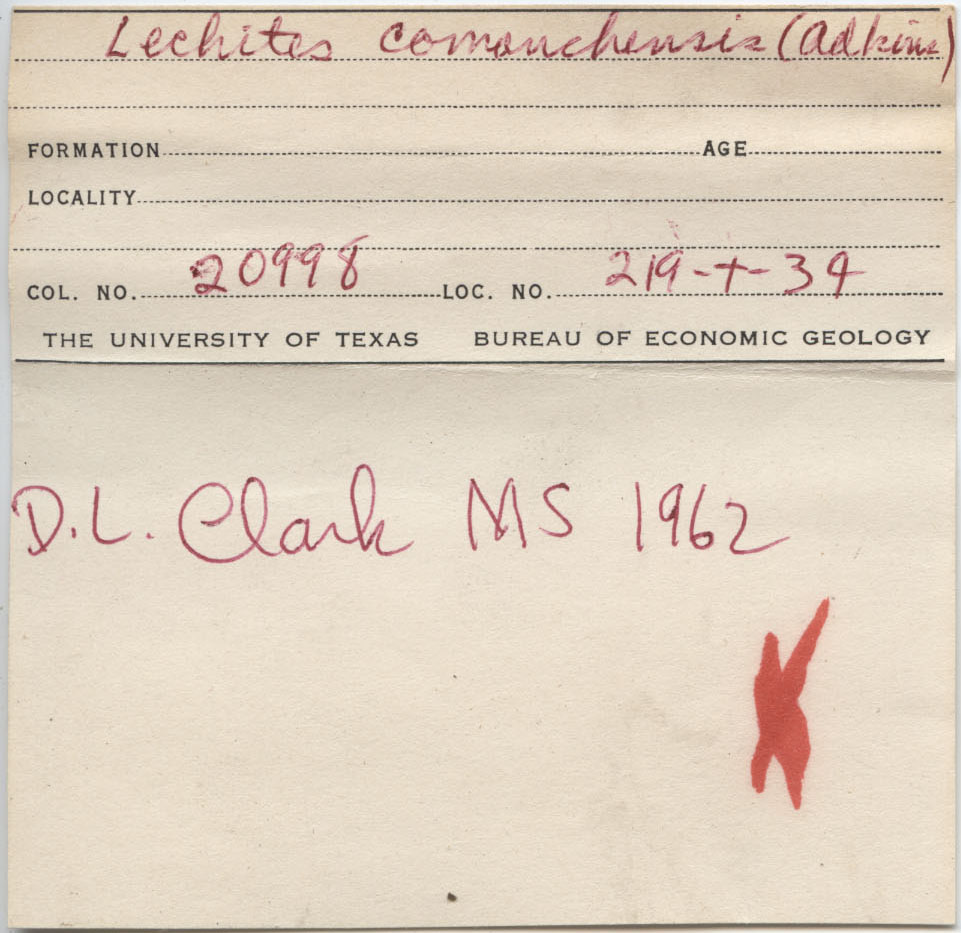 Lechites comanchensis (Adkins)
FORMATION AGE
LOCALITY
COL. NO. 20998 LOC. NO. 219-T-34
THE UNIVERSITY OF TEXAS BUREAU OF ECONOMIC GEOLOGY
D.L. Clark MS 1962